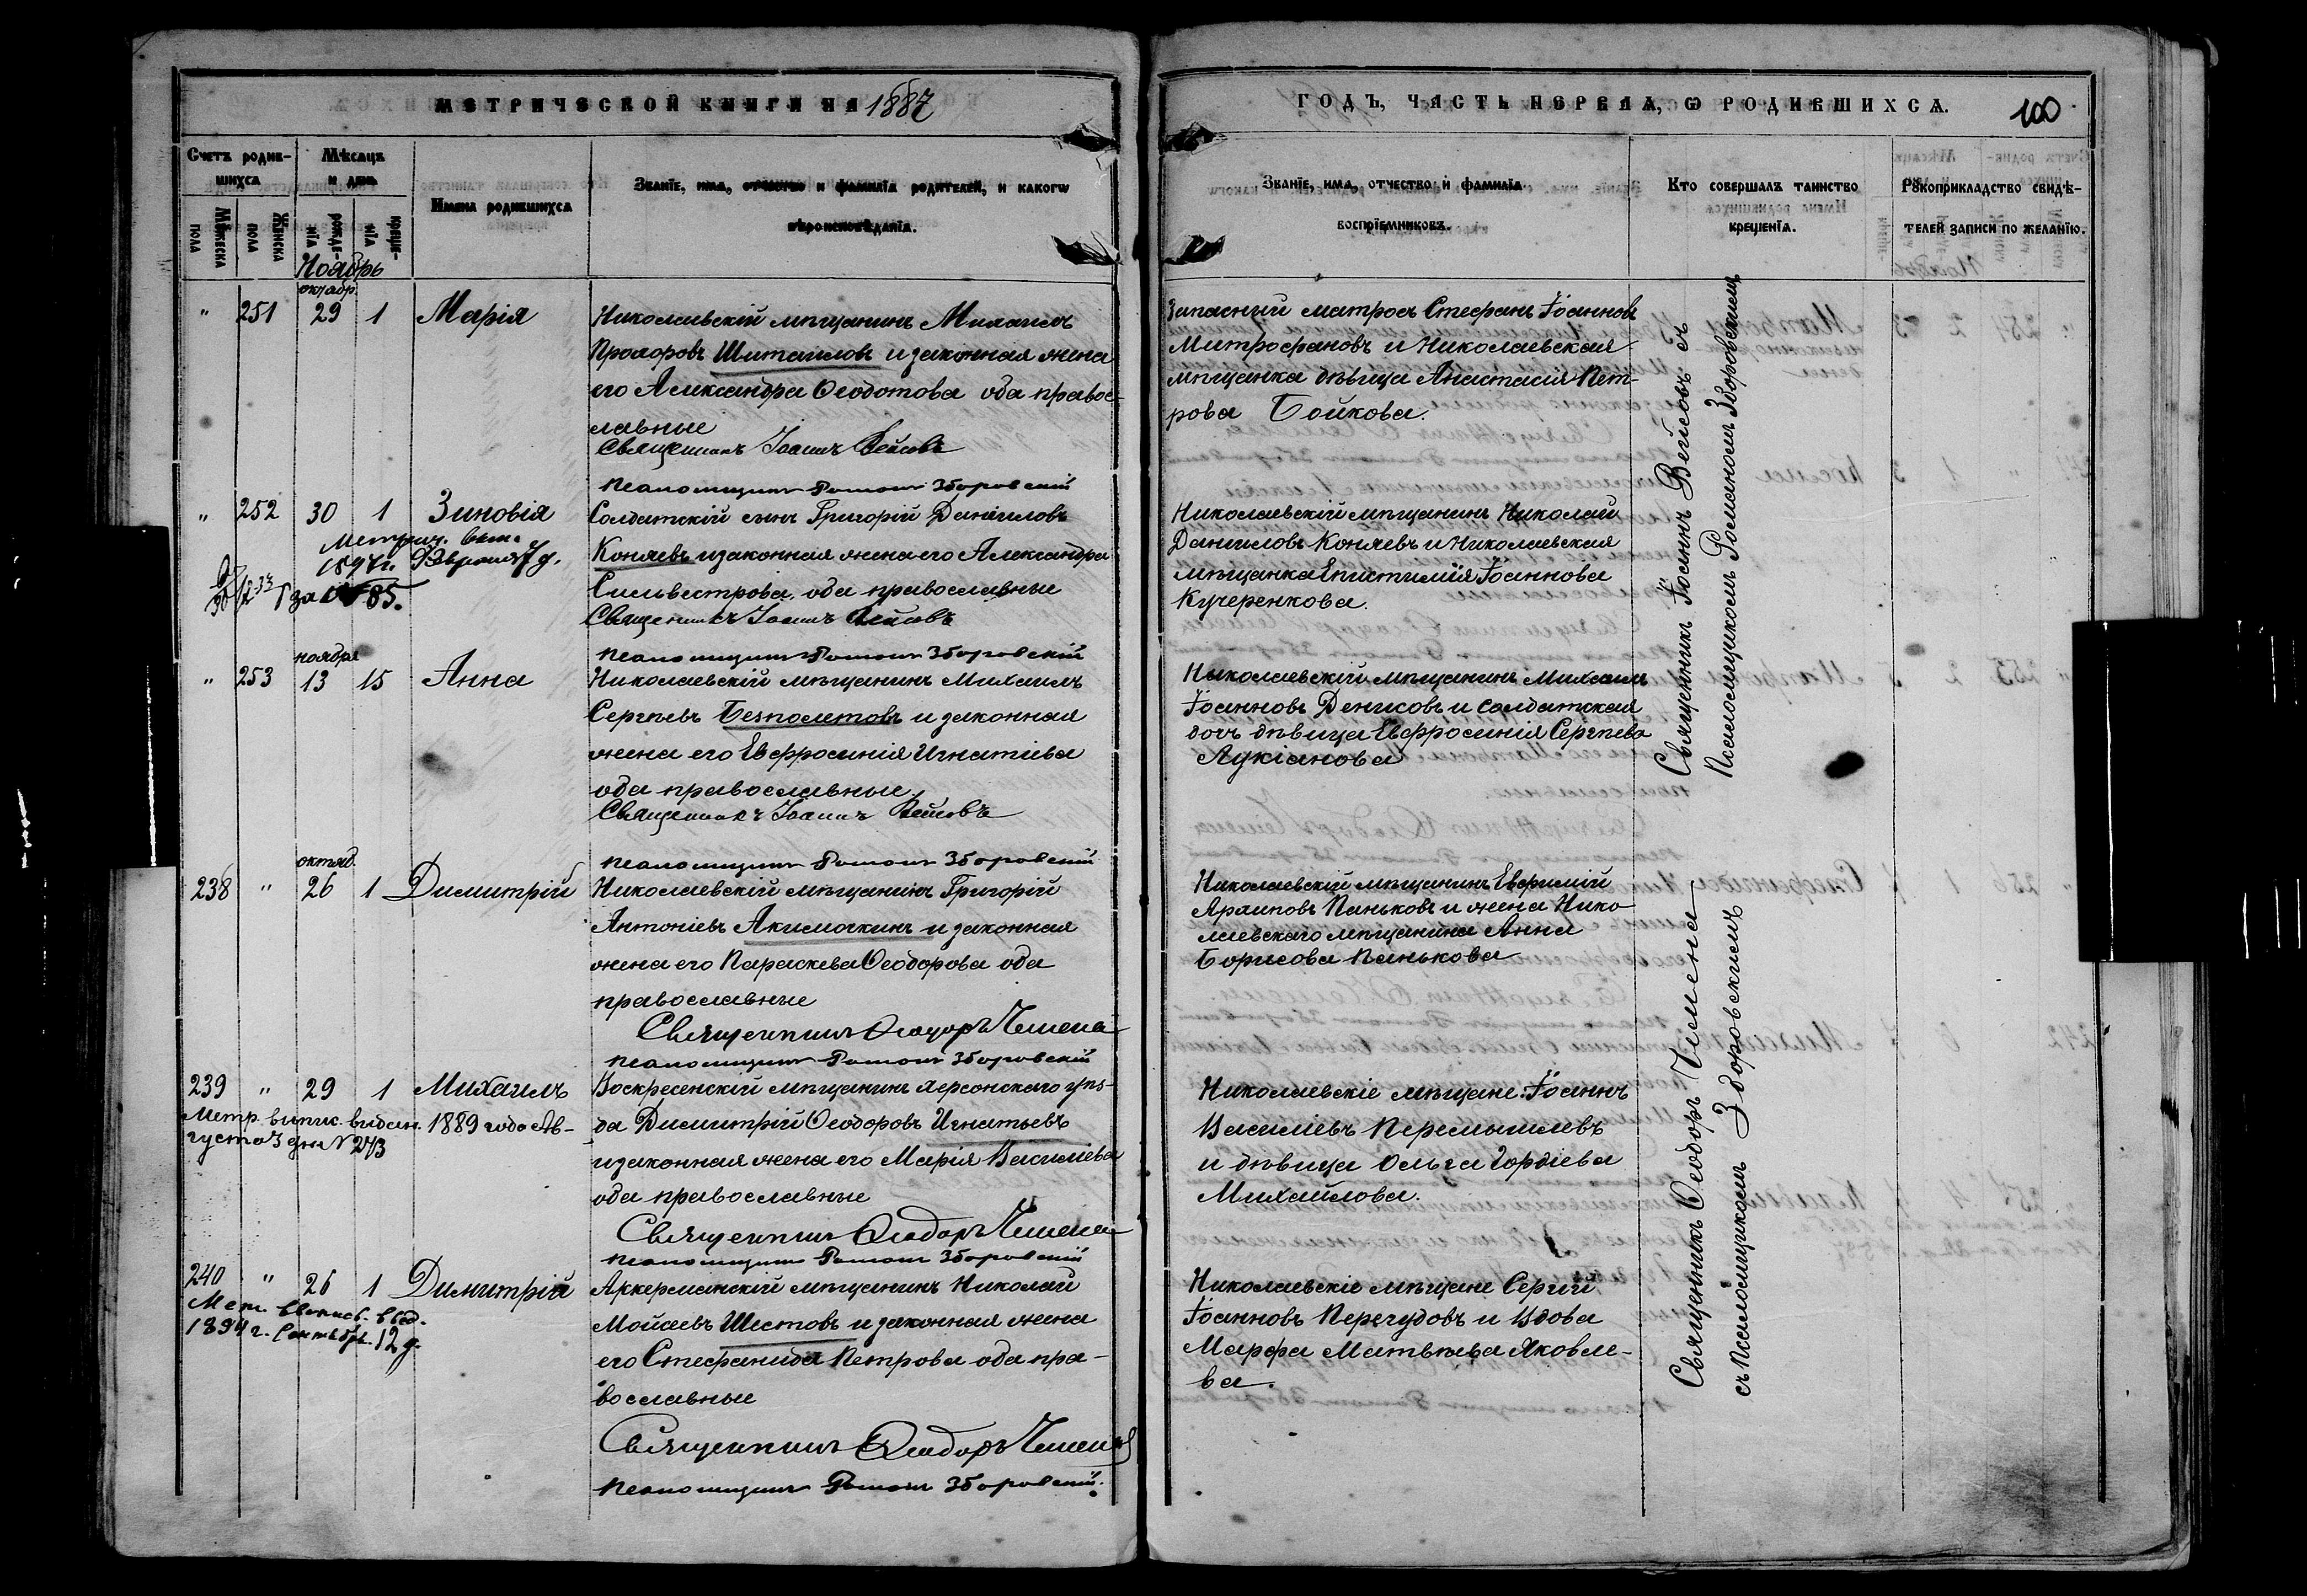 МЕТРИЧЕСКОЙ КНИГИ НА 1887
Счетъ родив-
шихся
Мѣсяцъ
и день
Имена родившихся
Званіе, имя, отчество и фамилія родителей, и какогѡ
вѣроисповѣданія.
Мѹжеска
пола
Женска
пола
рожде-
нія
креще-
нія
Ноябрь
октябр.
" 251 29 1 Марія
Николаевскій мѣщанинъ Михаилъ
Прохоровъ Шитаиловъ и законная жена
его Александра Ѳеодотова оба правос-
лавные
Священникъ Іоаннъ Вейсовъ
Псаломщикъ Романъ Зборовскій
" 252 30 1 Зиновія
Метрич. вып.
1897 г. Февраля 7 д.
за № 85.
Солдатскій сынъ Григорій Даніиловъ
Коняевъ и законная жена его Александра
Сильвестрова оба православные
Священникъ Іоаннъ Вейсовъ
Псаломщикъ Романъ Зборовскій
ноября
" 253 13 15 Анна
Николаевскій мѣщанинъ Михаилъ
Сергѣевъ Безполетовъ и законная
жена его Евфросинія Игнатіева
оба православные.
Священникъ Іоаннъ Вейсовъ
Псаломщикъ Романъ Зборовскій
октяб.
238 " 26 1 Димитрій
Николаевскій мѣщанинъ Григорій
Антоніевъ Акимочкинъ и законная
жена его Параскева Ѳеодорова оба
православные
Священникъ Ѳеодоръ Чемена
Псаломщикъ Романъ Зборовскій
239 " 29 1 Михаилъ
Метр. выпис. выдан. 1889 года Ав-
густа 3 дня № 273
Воскресенскій мѣщанинъ херсонскаго уѣз-
да Димитрій Ѳеодоровъ Игнатьевъ
и законная жена его Марія Василіева
оба православные
Священникъ Ѳеодоръ Чемена
Псаломщикъ Романъ Зборовскій
240 " 26 1 Димитрій
Мет. выпись. выд.
1894 г. Сентябр. 12 д.
Аккерманскій мѣщанинъ Николай
Моисеевъ Шестовъ и законная жена
его Стефанида Петрова оба пра-
вославные
Священникъ Ѳеодоръ Чемена
Псаломщикъ Романъ Зборовскій.
ГОДЪ, ЧАСТЬ ПЕРВАЯ, Ѡ РОДИВШИХСѦ.
100
Званіе, имя, отчество и фамилія
воспріемниковъ.
Кто совершалъ таинство
крещенія.
Рѹкоприкладство свидѣ-
телей записи по желанію.
Запасный матросъ Стефанъ Іоанновъ
Митрофановъ и Николаевская
мѣщанка дѣвица Анастасія Пет-
рова Бойкова.
Николаевскій мѣщанинъ Николай
Даниловъ Коняевъ и Николаевская
мѣщанка Епистимія Іоаннова
Кучеренкова.
Николаевскій мѣщанинъ Михаилъ
Іоанновъ Денисовъ и солдатская
дочь дѣвица Евфросинія Сергѣева
Лукіанова
Николаевскій мѣщанинъ Евфимій
Архиповъ Паньковъ и жена Нико-
лаевскаго мѣщанина Анна
Борисова Панькова
Николаевскіе мѣщане: Іоаннъ
Василіевъ Перемышлевъ
и дѣвица Ольга Гордіева
Михайлова.
Николаевскіе мѣщане Сергій
Іоанновъ Перегудовъ и вдова
Марфа Матвѣева Яковле-
ва.
Священникъ Іоаннъ Вейсовъ съ
Псаломщикомъ Романомъ Зборовскимъ
Священникъ Ѳеодоръ Чемена
съ Псаломщикомъ Зборовскимъ